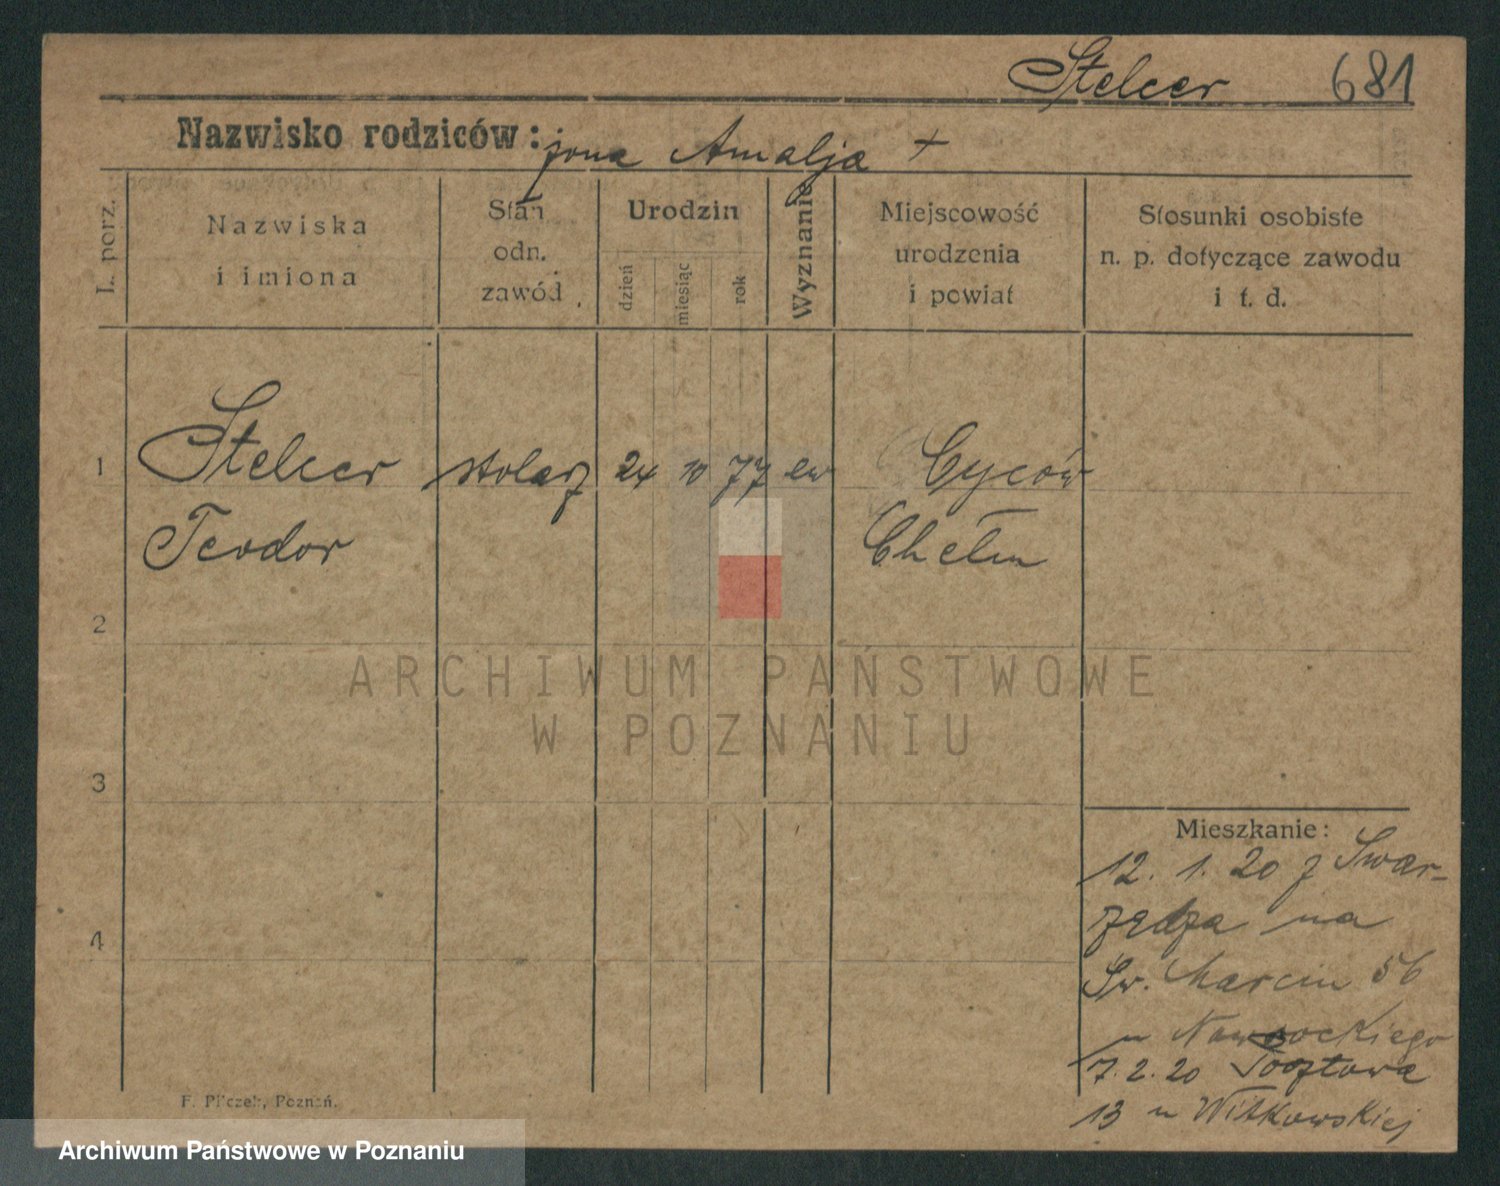 Stelcer 681
Nazwisko rodziców: żona Amalja +
L. porz.
Nazwiska
i imiona
Stan
odn.
zawód
Urodzin
dzień
miesiąc
rok
Wyznanie
Miejscowość
urodzenia
i powiat
Stosunki osobiste
n. p. dotyczące zawodu
i t. d.
1 Stelcer stolarz 24 10 77 ew Cyców
Teodor Chełm
2
3
4
Mieszkanie:
12. 1. 20 z Swar-
zędza na
Św. Marcin 56
u Nawrockiego
7. 2. 20 Pocztowa
13 u Witkowskiej
F. Pilczek, Poznań.
ARCHIWUM PAŃSTWOWE
W POZNANIU
Archiwum Państwowe w Poznaniu